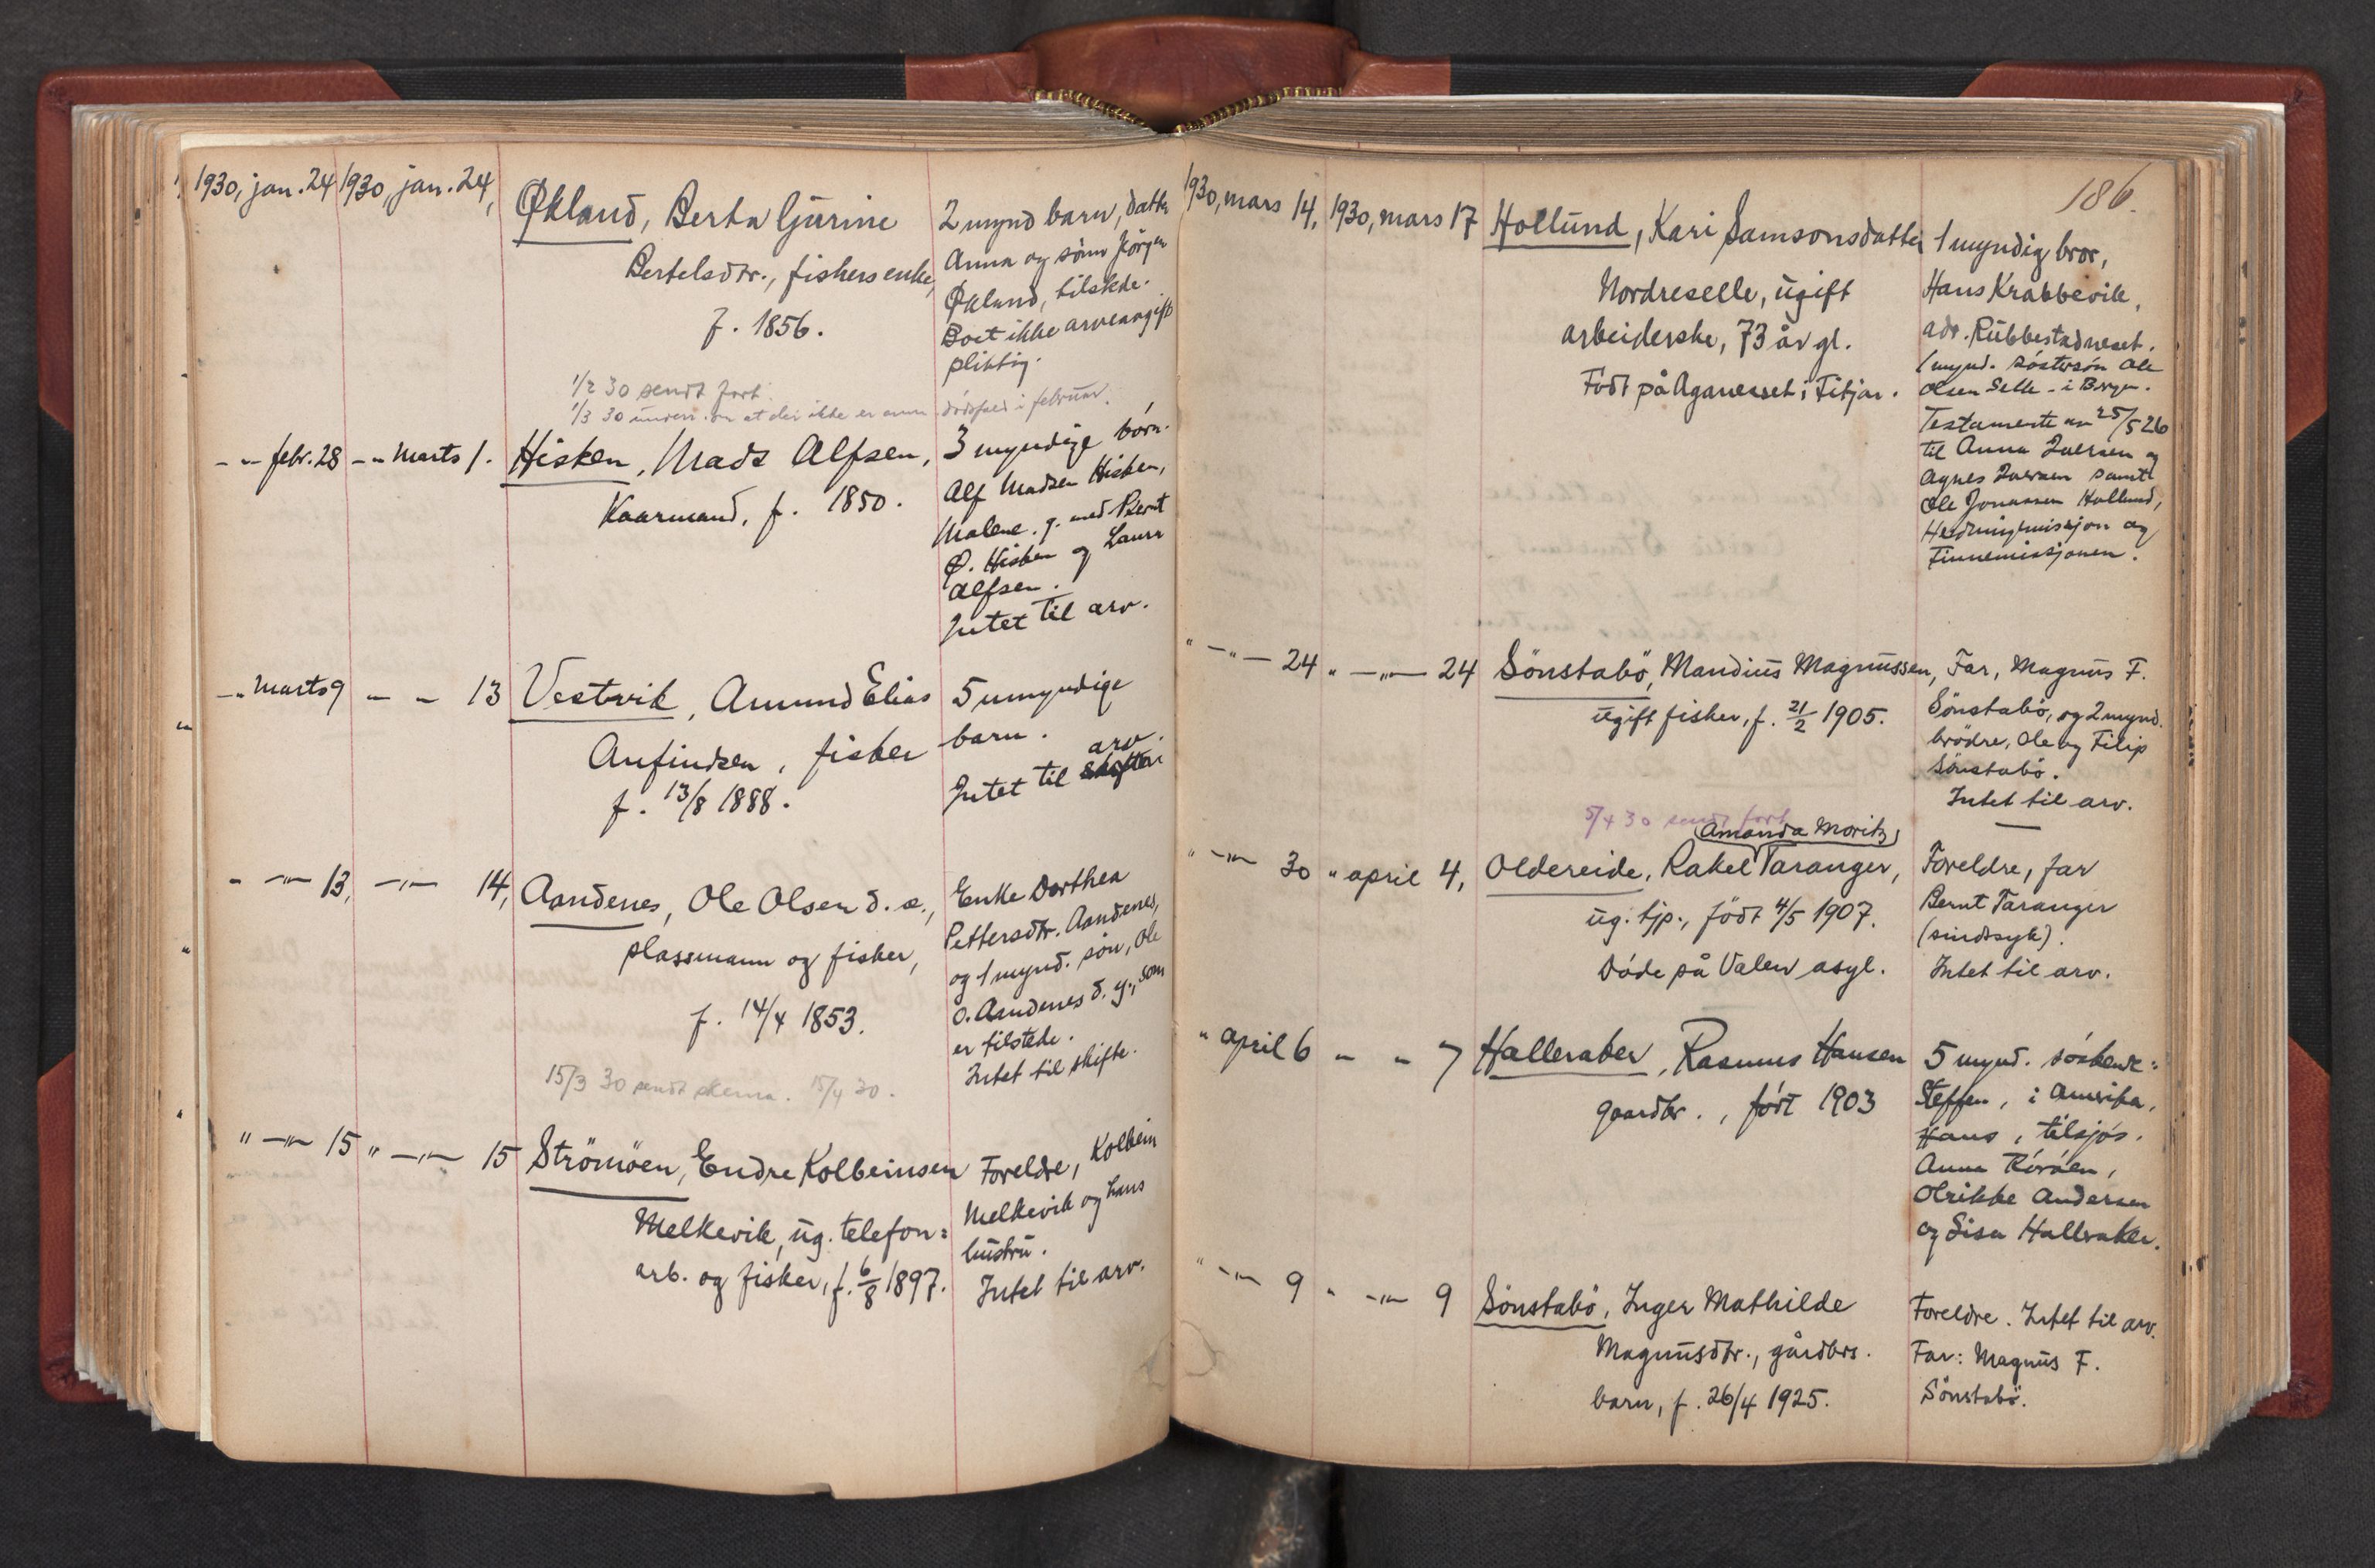 1930, jan. 24 1930, jan. 24, Økland, Berta Gurine 2 mynd barn, datter
Bertelsdtr., fiskersenke, Anna og sønn Jörgen
f. 1856. Økland, tilstede.
Boet ikke arveavgift
pliktig.
1/2 30 sendt fort.
1/3 30 underr. om at der ikke er anm dödsfald i februar.
- - febr. 28 - - Marts 1. Hisken, Mads Alfsen, 3 myndige börn.
Kaarmand, f. 1850. Alf Madsen Hisken,
Malene. g. med Bernt
Ø. Hisken og Laura
Alfsen.
Intet til arv.
- - Marts 9 - - 13 Vestvik, Amund Elias 5 umyndige
Anfindsen, fisker barn.
f. 13/8 1888. Intet til skifte arv.
- -"- 13, -"- 14, Aandenes, Ole Olsen d. e., Enke Dorthea
plassmann og fisker, Pettersdtr. Aandenes,
f. 14/4 1853. og 1 mynd. sön, Ole
O. Aandenes d. y., som
er tilstede.
Intet til skifte.
15/3 30 sendt skema. 15/4 30.
" -"- 15 " -"- 15 Strömöen, Endre Kolbeinsen Foreldre, Kolbein
Melkevik, ug. telefon= Melkevik og hans
arb. og fisker, f. 6/8 1897. hustru.
Intet til arv.
186.
1930, mars 14, 1930, mars 17 Hollund, Kari Samsonsdatter 1 myndig bror,
Nordreselle, ugift Hans Krabbevik,
arbeiderske, 73 år gl. adr. Rubbestadneset.
Födt på Aganesset i Fitjar. 1 mynd. söstersön Ole
Olsen Selle - i Bergen.
Testamente av 25/5 26
til Anna Iversen og
Agnes Iversen samt
Ole Jonassen Hollund,
Hedningmissjon og
Finnemissjonen.
" -"- 24 " -"- 24 Sönstabö, Mandius Magnussen, Far, Magnus F.
ugift fisker, f. 21/2 1905. Sönstabö, og 2 mynd.
brödre, Ole og Filip
Sönstabö.
Intet til arv.
5/4 30 sendt fort
Amanda Moritz
" -"- 30 " april 4, Oldereide, Rakel Taranger, Foreldre, far
ug. tjp., födt 4/5 1907. Bernt Taranger
(sindssyk).
Döde på Valen asyl. Intet til arv.
" april 6 - - 7 Halleraker, Rasmus Hansen 5 mynd. söskende:
gaardbr., födt 1903 Steffen, i Amerika,
Hans, tilsjös.
Anna Röröen,
Olrikke Andersen
og Lisa Hallraker.
" -"- 9 " -"- 9 Sönstabö, Inger Mathilde Foreldre. Intet til arv.
Magnusdtr., gårdbrs. Far: Magnus F.
barn, f. 26/4 1925. Sönstabö.